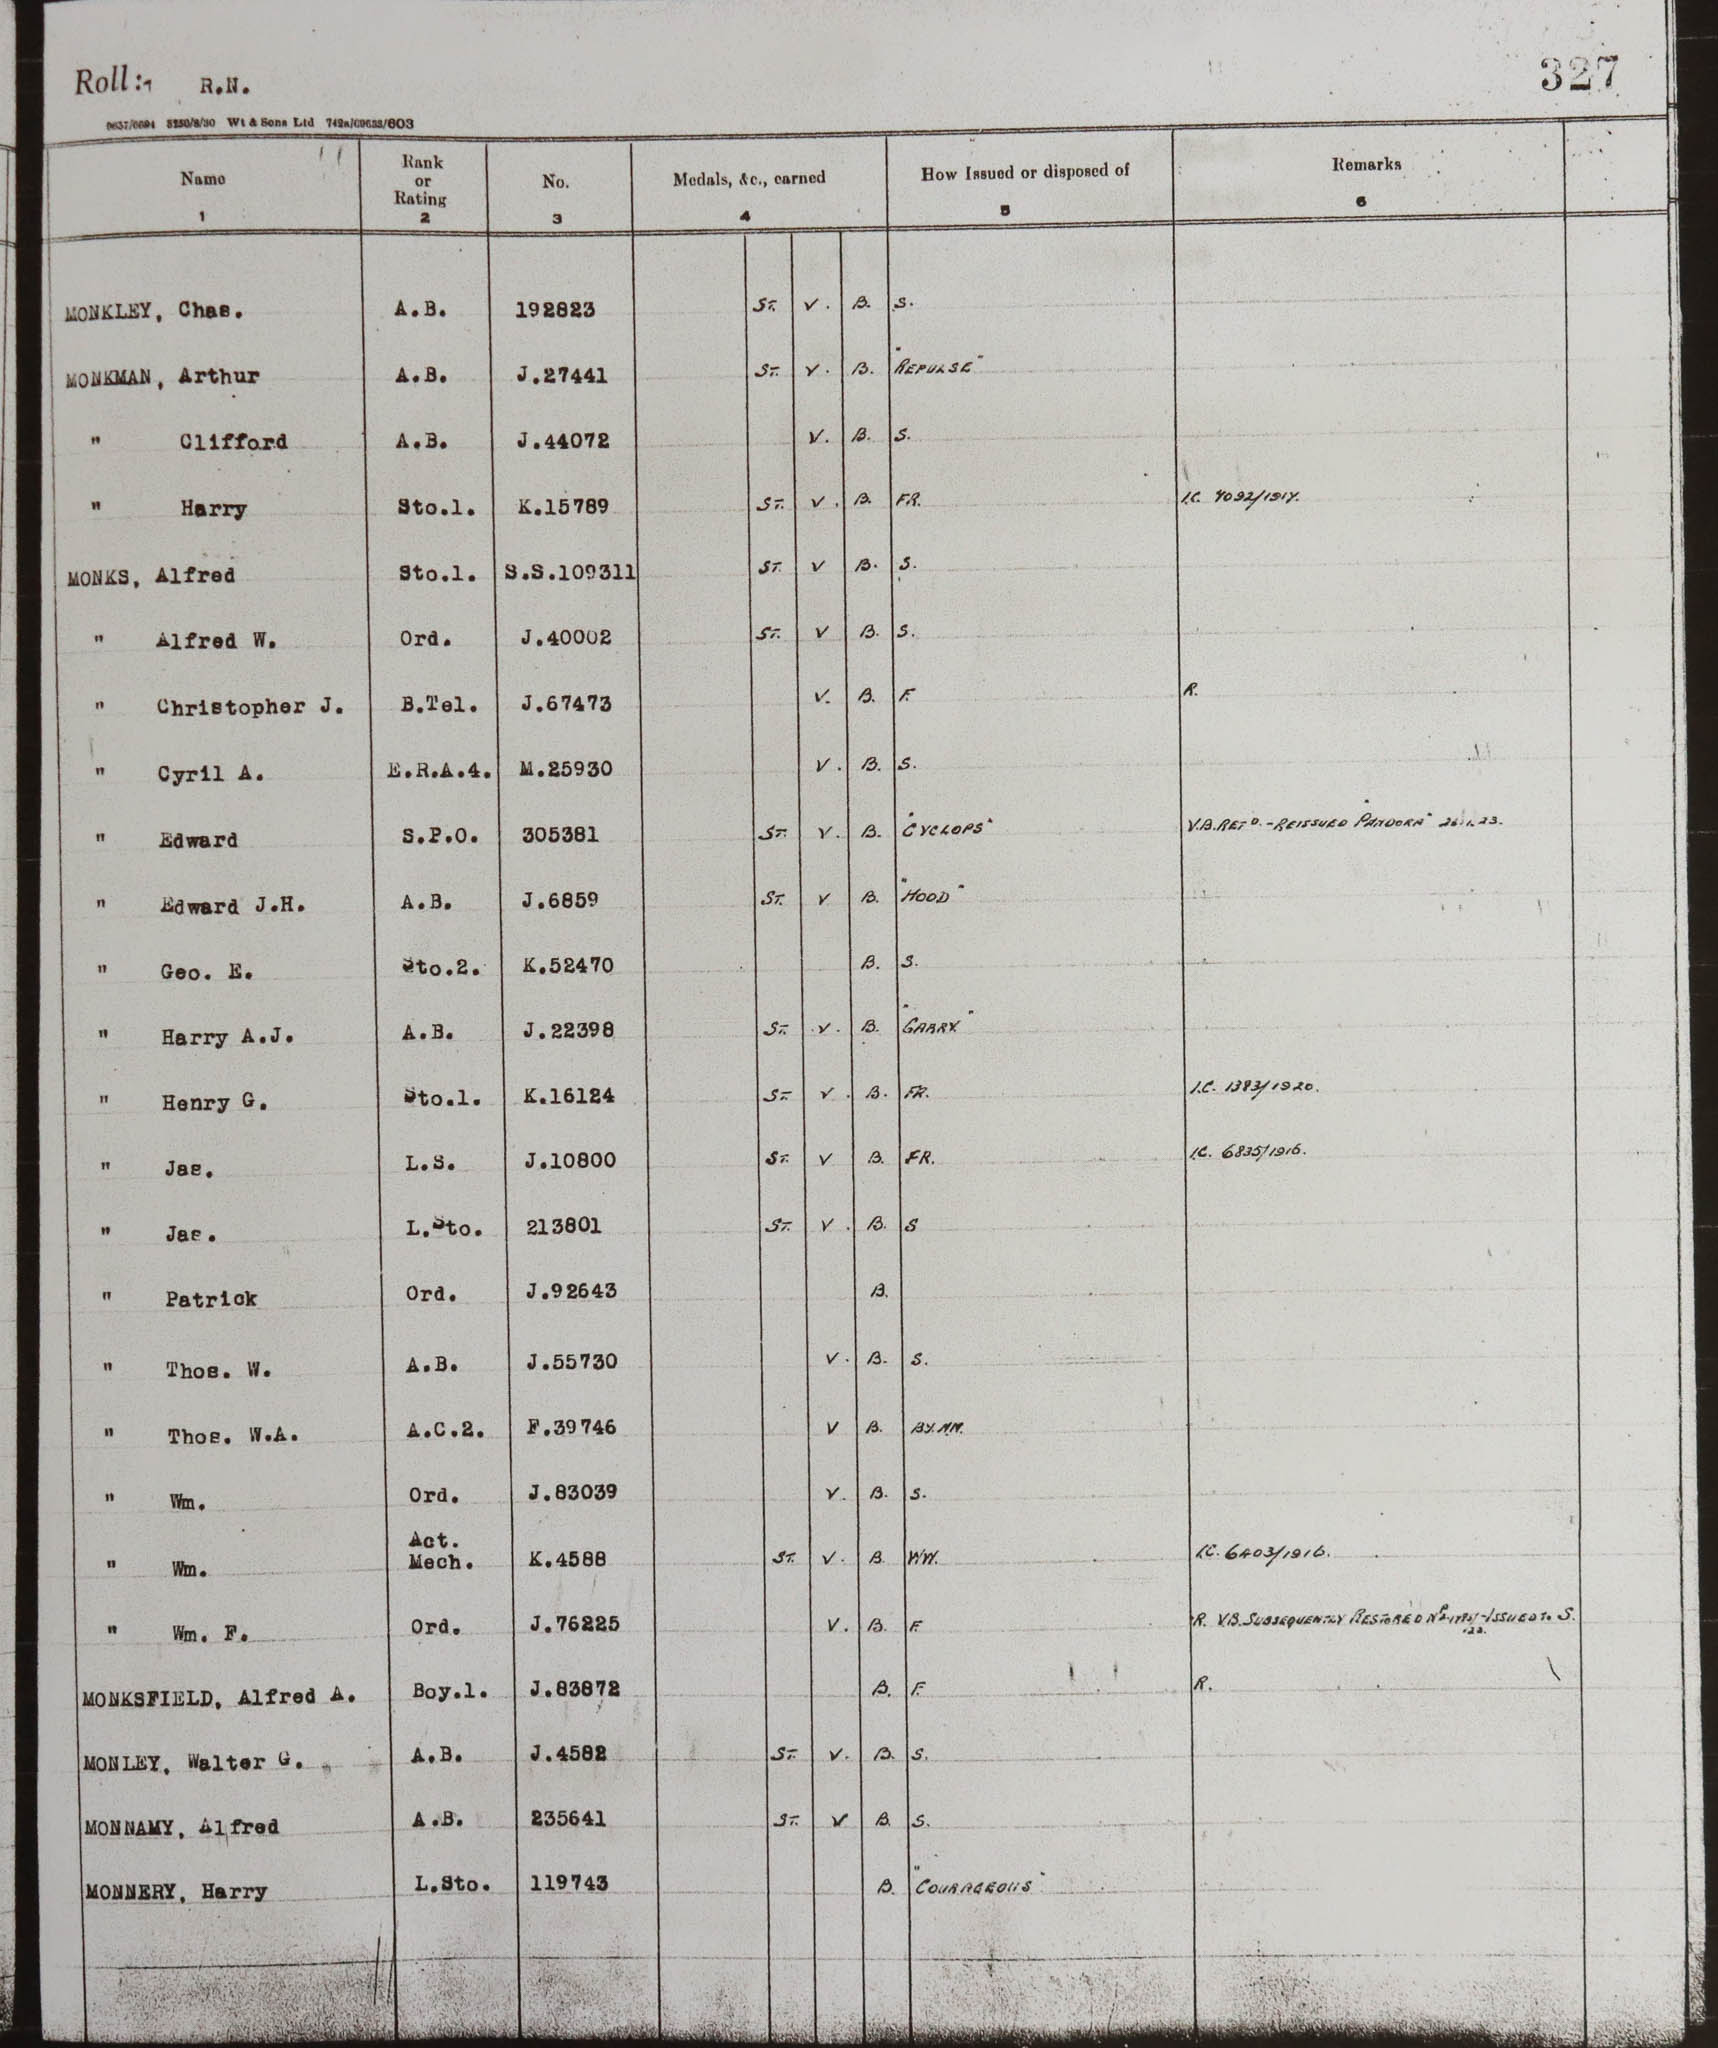 Roll:- R.N. 327
Wt & Sons Ltd
Name Rank or Rating No. Medals, &c., earned How Issued or disposed of Remarks
1 2 3 4 5 6
MONKLEY, Chas. A.B. 192823 ST. V. B. S.
MONKMAN, Arthur A.B. J.27441 ST. V. B. "REPULSE"
" Clifford A.B. J.44072 V. B. S.
" Harry Sto.1. K.15789 ST. V. B. FR. I.C.
MONKS, Alfred Sto.1. S.S.109311 ST. V B. S.
" Alfred W. Ord. J.40002 ST. V B. S.
" Christopher J. B.Tel. J.67473 V. B. F. R.
" Cyril A. E.R.A.4. M.25930 V. B. S.
" Edward S.P.O. 305381 ST. V. B. "CYCLOPS" V.B. RETD. - REISSUED "PANDORA"
" Edward J.H. A.B. J.6859 ST. V B. "HOOD"
" Geo. E. Sto.2. K.52470 B. S.
" Harry A.J. A.B. J.22398 ST. V. B. "GARRY."
" Henry G. Sto.1. K.16124 ST. V. B. FR. I.C. 1383/1920.
" Jas. L.S. J.10800 ST. V B. FR. I.C. 6835/1916.
" Jas. L.Sto. 213801 ST. V. B. S
" Patrick Ord. J.92643 B.
" Thos. W. A.B. J.55730 V. B. S.
" Thos. W.A. A.C.2. F.39746 V B.
" Wm. Ord. J.83039 V. B. S.
" Wm. Act. Mech. K.4588 ST. V. B. WW. I.C. 6403/1916.
" Wm. F. Ord. J.76225 V. B. F. R. V.B. SUBSEQUENTLY RESTORED ISSUED TO S.
MONKSFIELD, Alfred A. Boy.1. J.83872 B. F. R.
MONLEY, Walter G. A.B. J.4582 ST. V. B. S.
MONNAMY, Alfred A.B. 235641 ST. V B. S.
MONNERY, Harry L.Sto. 119743 B. "COURAGEOUS"